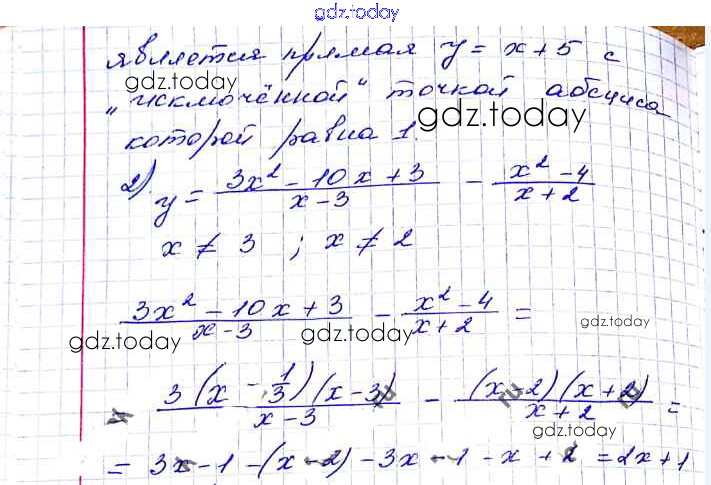 gdz.today
является прямая y = x + 5 с
gdz.today
„исключённой" точкой абсциса
gdz.today
которой равна 1.
2) y = (3x² - 10x + 3)/(x - 3) - (x² - 4)/(x + 2)
x ≠ 3 ; x ≠ 2
(3x² - 10x + 3)/(x - 3) - (x² - 4)/(x + 2) =
gdz.today
gdz.today gdz.today
= (3(x - 1/3)(x - 3))/(x - 3) - ((x - 2)(x + 2))/(x + 2) =
gdz.today
= 3x - 1 - (x - 2) - 3x - 1 - x + 2 = 2x + 1